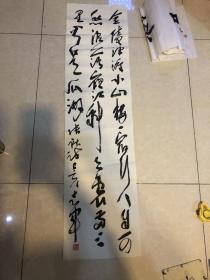 金陵津渡小山樓一宿行人自可
愁潮落夜江斜月裏兩三
星火是瓜洲